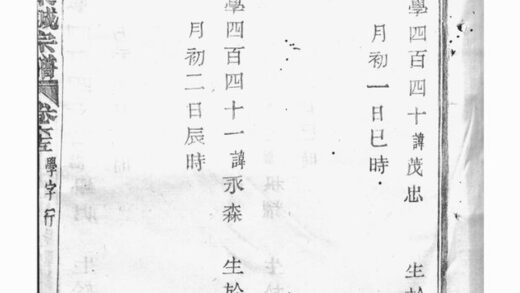 學四百四十諱茂忠 生於
月初一日巳時
學四百四十一諱永森 生於
月初二日辰時
宗譜
學字行